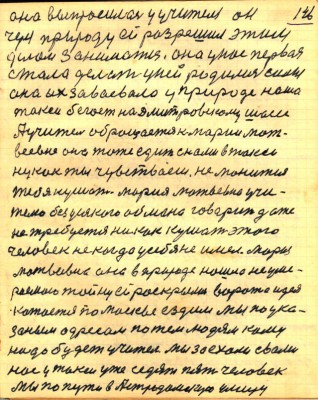 она выпросилась у учителя он 126
чем природу ей разрешил этим
делом заниматся. она у нас первая
стала делать у ней родились сыны
она их завоевало у природе наша
такси бегает на Дмитровскому шассе
Учитель обращается к марии мот-
веевне она тоже едит снами в такси
ну как ты чувствваеш. не монится
тебя кушат мария мотвевна учи-
телю без усякого обмана говарит даже
не требуется никак кушат этого
человек некогда у себя не имел. Мария
мотвевна она в природе нашла неуми-
раемого той ну ей раскрыли ворота идея
катается по Москве ездим мы по ука-
заным адресам по тем людям каму
надо будет учителя. мы заехали свали
нас у такси уже седят пят человек
мы по пути в Астродамскую улицу